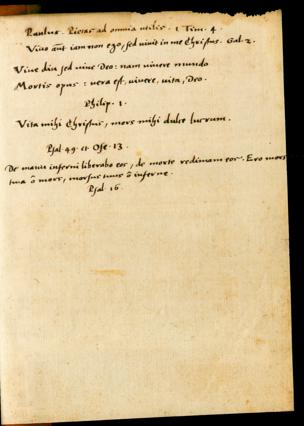 Paulus. Pietas ad omnia utilis. 1 Tim. 4.
Vivo aūt iam non ego, sed vivit in me Christus. Gal. 2.
Vive diu sed vive Deo: nam vivere mundo
Mortis opus: vera est vivere, vita, Deo.
Philip. 1.
Vita mihi Christus, mors mihi dulce lucrum.
Psal 49. et Ose. 13.
De manu inferni liberabo eos, de morte redimam eos. Ero mors
tua ô mors, morsus tuus ô inferne.
Psal. 16.